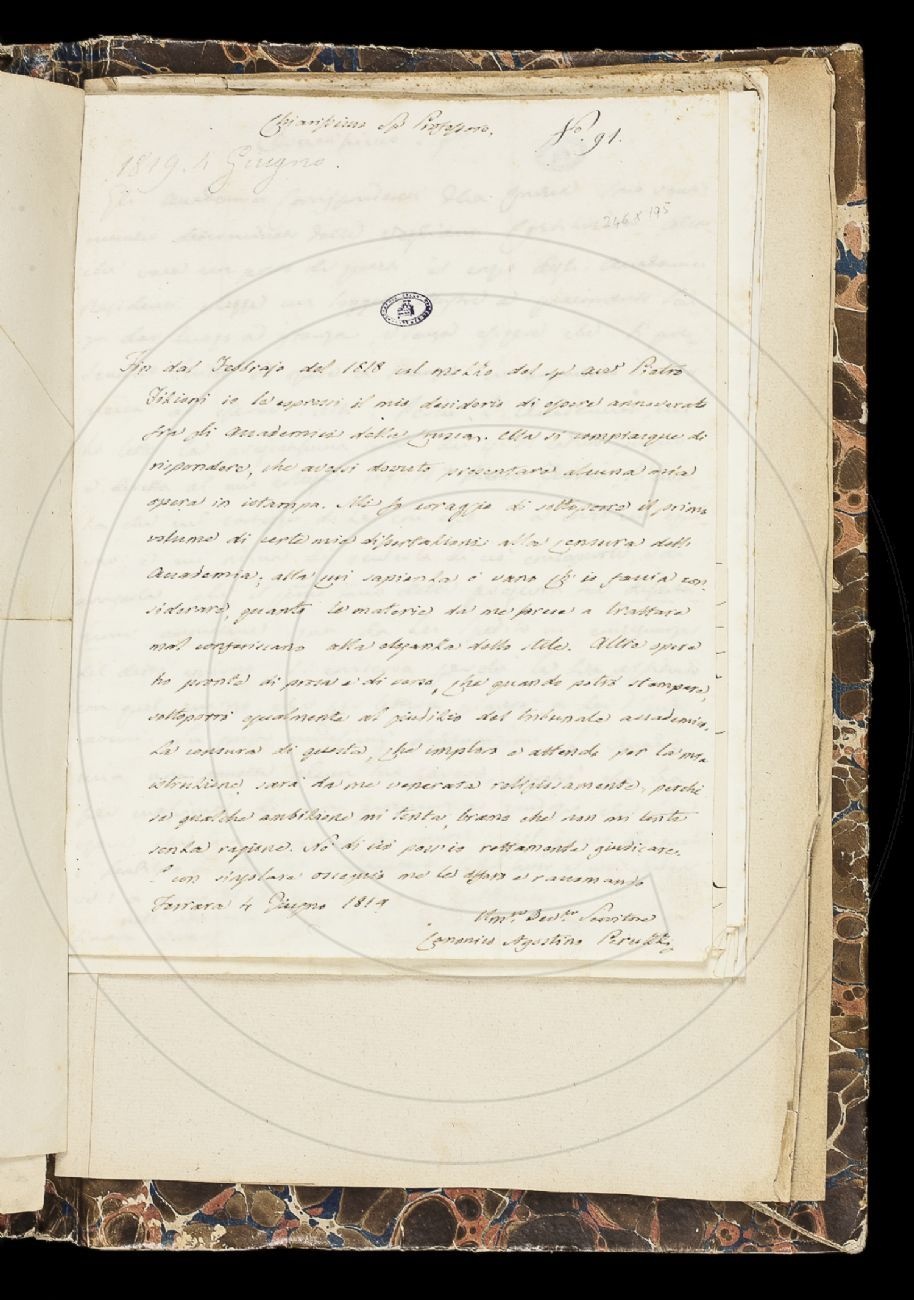 Chiarissimo Sig.r Professore,
No. 91.
1819. 4 Giugno.
246 x 195
Fin dal Febbrajo del 1818 col mezzo del Sig.r avv.o Pietro
io le espressi il mio desiderio di essere annoverato
fra gli Accademici della Crusca. Ella si compiacque di
rispondere, che avessi dovuto presentare alcuna mia
opera in istampa. Mi fo coraggio di sottoporre il primo
volume di certe mie dissertazioni alla censura dell'
Accademia, alla cui sapienza è vano ch' io faccia con
siderare quanto le materie da me prese a trattare
mal conferiscano alla eleganza dello stile. Altre opere
ho pronte di prosa e di verso, che quando potrò stampare,
sottoporrò egualmente al giudizio del tribunale accademico.
La censura di questa, che imploro e attendo per la mia
istruzione, sarà da me venerata religiosamente, perchè
se qualche ambizione mi tenta, bramo che non mi tenti
senza ragione. Nè di ciò poss' io rettamente giudicare.
E con singolare ossequio me le offro e raccomando
Ferrara 4 Giugno 1819
Um.mo Dev.mo Servitore
Canonico Agostino Peruzzi